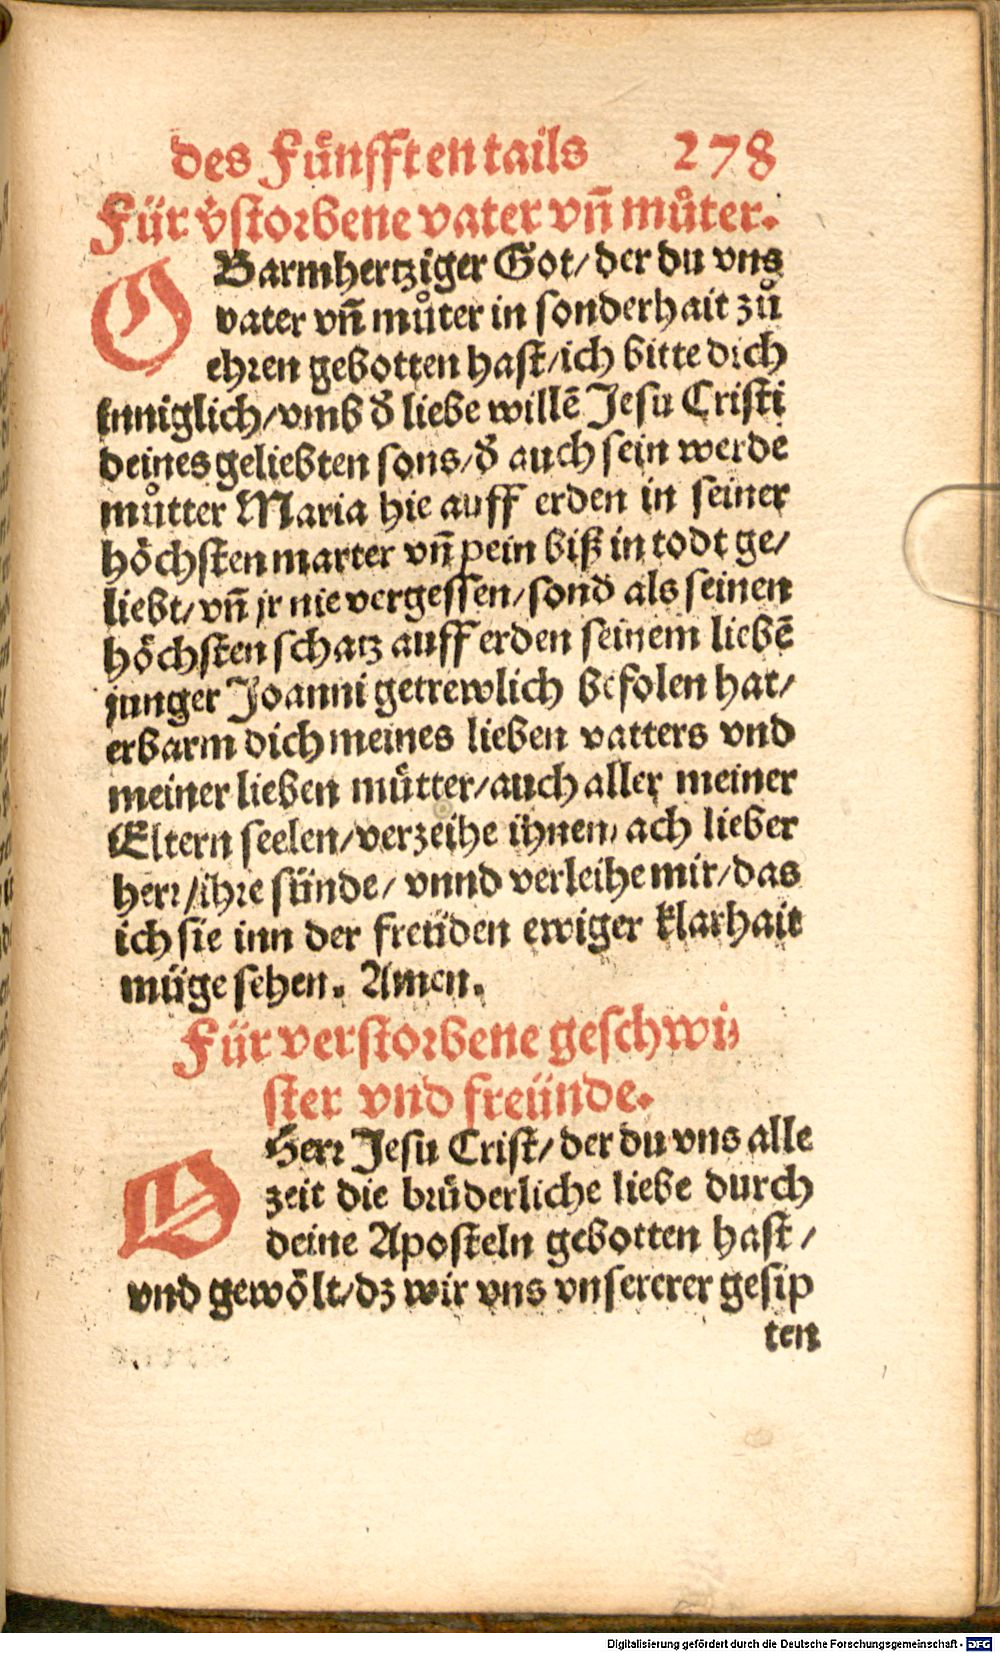 des Fünfften tails 278
Für v̓storbene vater vn̄ můter.
O Barmhertziger Got/ der du vns
vater vn̄ můter in sonderhait zů
ehren gebotten hast/ ich bitte dich
inniglich/ vmb d̓ liebe willē Jesu Cristi
deines geliebten sons/ d̓ auch sein werde
můtter Maria hie auff erden in seiner
höchsten marter vn̄ pein biß in todt ge/
liebt/ vn̄ jr nie vergessen/ sond̓ als seinen
höchsten schatz auff erden seinem liebē
junger Joanni getrewlich befolen hat/
erbarm dich meines lieben vatters vnd
meiner lieben mütter/ auch aller meiner
Eltern seelen/ verzeihe ihnen, ach lieber
herr/ ihre sünde/ vnnd verleihe mir/ das
ich sie inn der freüden ewiger klarhait
müge sehen. Amen.
Für verstorbene geschwi⸗
ster vnd freünde.
O Herr Jesu Crist/ der du vns alle
zeit die brüderliche liebe durch
deine Aposteln gebotten hast/
vnd gewölt/ dz wir vns vnsererer gesip
ten
Digitalisierung gefördert durch die Deutsche Forschungsgemeinschaft - DFG